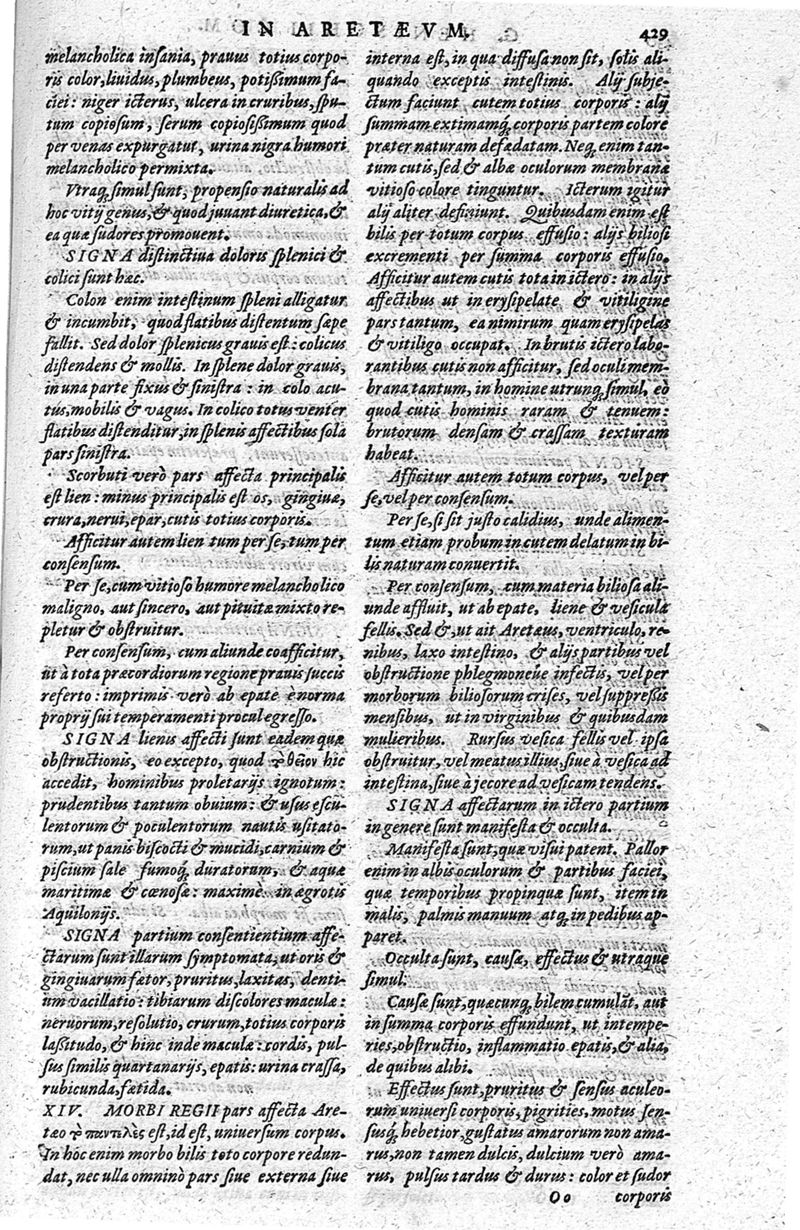 IN ARETÆVM. 429
melancholica insania, prauus totius corpo-
ris color, liuidus, plumbeus, potißimum fa-
ciei: niger icterus, ulcera in cruribus, spu-
tum copiosum, serum copiosißimum quod
per venas expurgatur, urina nigra humori
melancholico permixta.
Vtraq; simul sunt, propensio naturalis ad
hoc vitij genus, & quod juuant diuretica, &
ea quæ sudores promouent.
SIGNA distinctiua doloris splenici &
colici sunt hæc.
Colon enim intestinum spleni alligatur
& incumbit, quod flatibus distentum sæpe
fallit. Sed dolor splenicus grauis est: colicus
distendens & mollis. In splene dolor grauis,
in una parte fixus & sinistra: in colo acu-
tus, mobilis & vagus. In colico totus venter
flatibus distenditur, in splenis affectibus sola
pars sinistra.
Scorbuti verò pars affecta principalis
est lien: minus principalis est os, gingiuæ,
crura, nerui, epar, cutis totius corporis.
Afficitur autem lien tum per se, tum per
consensum.
Per se, cum vitioso humore melancholico
maligno, aut sincero, aut pituitæ mixto re-
pletur & obstruitur.
Per consensum, cum aliunde coafficitur,
ut à tota præcordiorum regione prauis succis
referto: imprimis verò ab epate è norma
proprij sui temperamenti procul egresso.
SIGNA lienis affecti sunt eadem quæ
obstructionis, eo excepto, quod τὸ θεῖον hic
accedit, hominibus proletarijs ignotum:
prudentibus tantum obuium: & usus escu-
lentorum & poculentorum nautis usitato-
rum, ut panis biscocti & mucidi, carnium &
piscium sale fumoq; duratorum, & aquæ
maritimæ & cœnosæ: maximè in ægrotis
Aquilonijs.
SIGNA partium consentientium affe-
ctarum sunt illarum symptomata, ut oris &
gingiuarum fætor, pruritus, laxitas, denti-
um vacillatio: tibiarum discolores maculæ:
neruorum, resolutio, crurum, totius corporis
laßitudo, & hinc inde maculæ: cordis, pul-
sus similis quartanarijs, epatis: urina crassa,
rubicunda, fætida.
XIV. MORBI REGII pars affecta Are-
tæo τὸ παντελὲς est, id est, uniuersum corpus.
In hoc enim morbo bilis toto corpore redun-
dat, nec ulla omninò pars siue externa siue
interna est, in qua diffusa non sit, solis ali-
quando exceptis intestinis. Alij subje-
ctum faciunt cutem totius corporis: alij
summam extimamq; corporis partem colore
præter naturam defædatam. Neq; enim tan-
tum cutis, sed & albæ oculorum membranæ
vitioso colore tinguntur. Icterum igitur
alij aliter definiunt. Quibusdam enim est
bilis per totum corpus effusio: alijs biliosi
excrementi per summa corporis effusio.
Afficitur autem cutis tota in ictero: in alijs
affectibus ut in erysipelate & vitiligine
pars tantum, ea nimirum quam erysipelas
& vitiligo occupat. In brutis ictero labo-
rantibus cutis non afficitur, sed oculi mem-
brana tantum, in homine utrunq; simul, eò
quod cutis hominis raram & tenuem:
brutorum densam & crassam texturam
habeat.
Afficitur autem totum corpus, vel per
se, vel per consensum.
Per se, si sit justo calidius, unde alimen-
tum etiam probum in cutem delatum in bi-
lis naturam convertit.
Per consensum, cum materia biliosa ali-
unde affluit, ut ab epate, liene & vesicula
fellis. Sed &, ut ait Aretæus, ventriculo, re-
nibus, laxo intestino, & alijs partibus vel
obstructione phlegmoneúe infectis, vel per
morborum biliosorum crises, vel suppreßis
mensibus, ut in virginibus & quibusdam
mulieribus. Rursus vesica fellis vel ipsa
obstruitur, vel meatus illius, siue à vesica ad
intestina, siue à jecore ad vesicam tendens.
SIGNA affectarum in ictero partium
in genere sunt manifesta & occulta.
Manifesta sunt, quæ visui patent. Pallor
enim in albis oculorum & partibus faciei,
quæ temporibus propinquæ sunt, item in
malis, palmis manuum atq; in pedibus ap-
paret.
Occulta sunt, causæ, effectus & utraque
simul.
Causæ sunt, quæcunq; bilem cumulãt, aut
in summa corporis effundunt, ut intempe-
ries, obstructio, inflammatio epatis, & alia,
de quibus alibi.
Effectus sunt, pruritus & sensus aculeo-
rum uniuersi corporis, pigrities, motus sen-
susq; hebetior, gustatus amarorum non ama-
rus, non tamen dulcis, dulcium verò ama-
rus, pulsus tardus & durus: color et sudor
Oo corporis